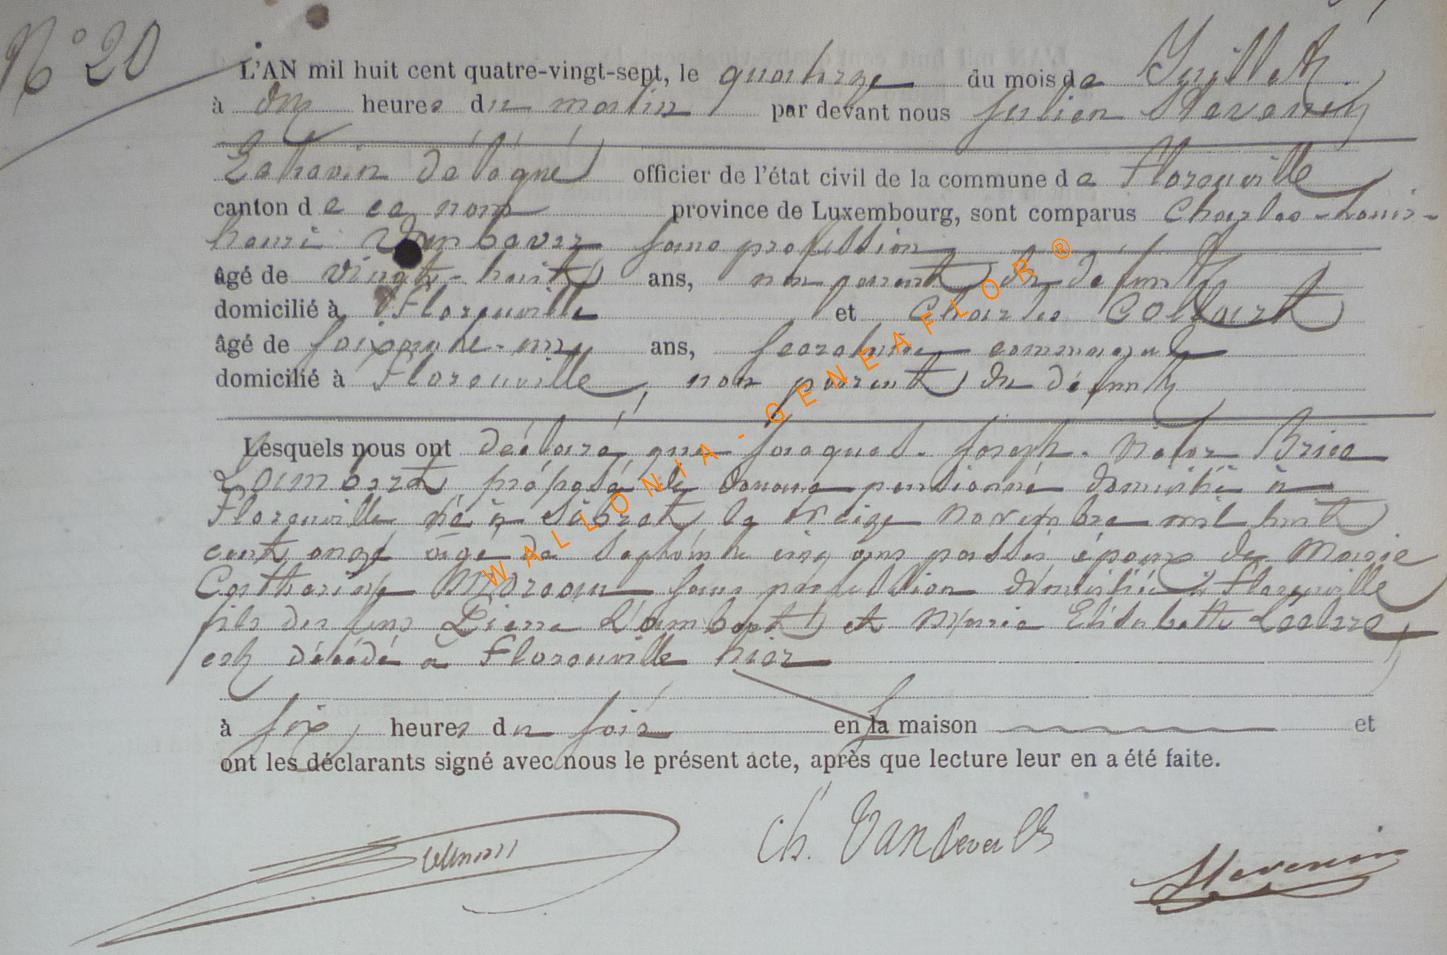 N° 20
L'AN mil huit cent quatre-vingt-sept, le quatorze du mois de Juillet
à dix heures du matin par devant nous Julien
Echevin délégué officier de l'état civil de la commune de Florenville
canton de ce nom province de Luxembourg, sont comparus Charles-Louis-
henri sans profession
âgé de vingt-huit ans, non parent du défunt
domicilié à Florenville et Charles
âgé de soixante- ans, Secrétaire communal
domicilié à Florenville, non parent du défunt
Lesquels nous ont déclaré que Jacques-Joseph-Victor Brice
Lambert préposé de douane pensionné domicilié à
Florenville né à Sibret le treize Novembre mil huit
cent onze âgé de septante cinq ans passés époux de Marie
Catherine sans profession domiciliée à Florenville
fils des feus Pierre Lambert et Marie Elisabeth
est décédé à Florenville hier
à six heures du soir en sa maison et
ont les déclarants signé avec nous le présent acte, après que lecture leur en a été faite.
Ch.
WALLONIA-GENEAFLOR®